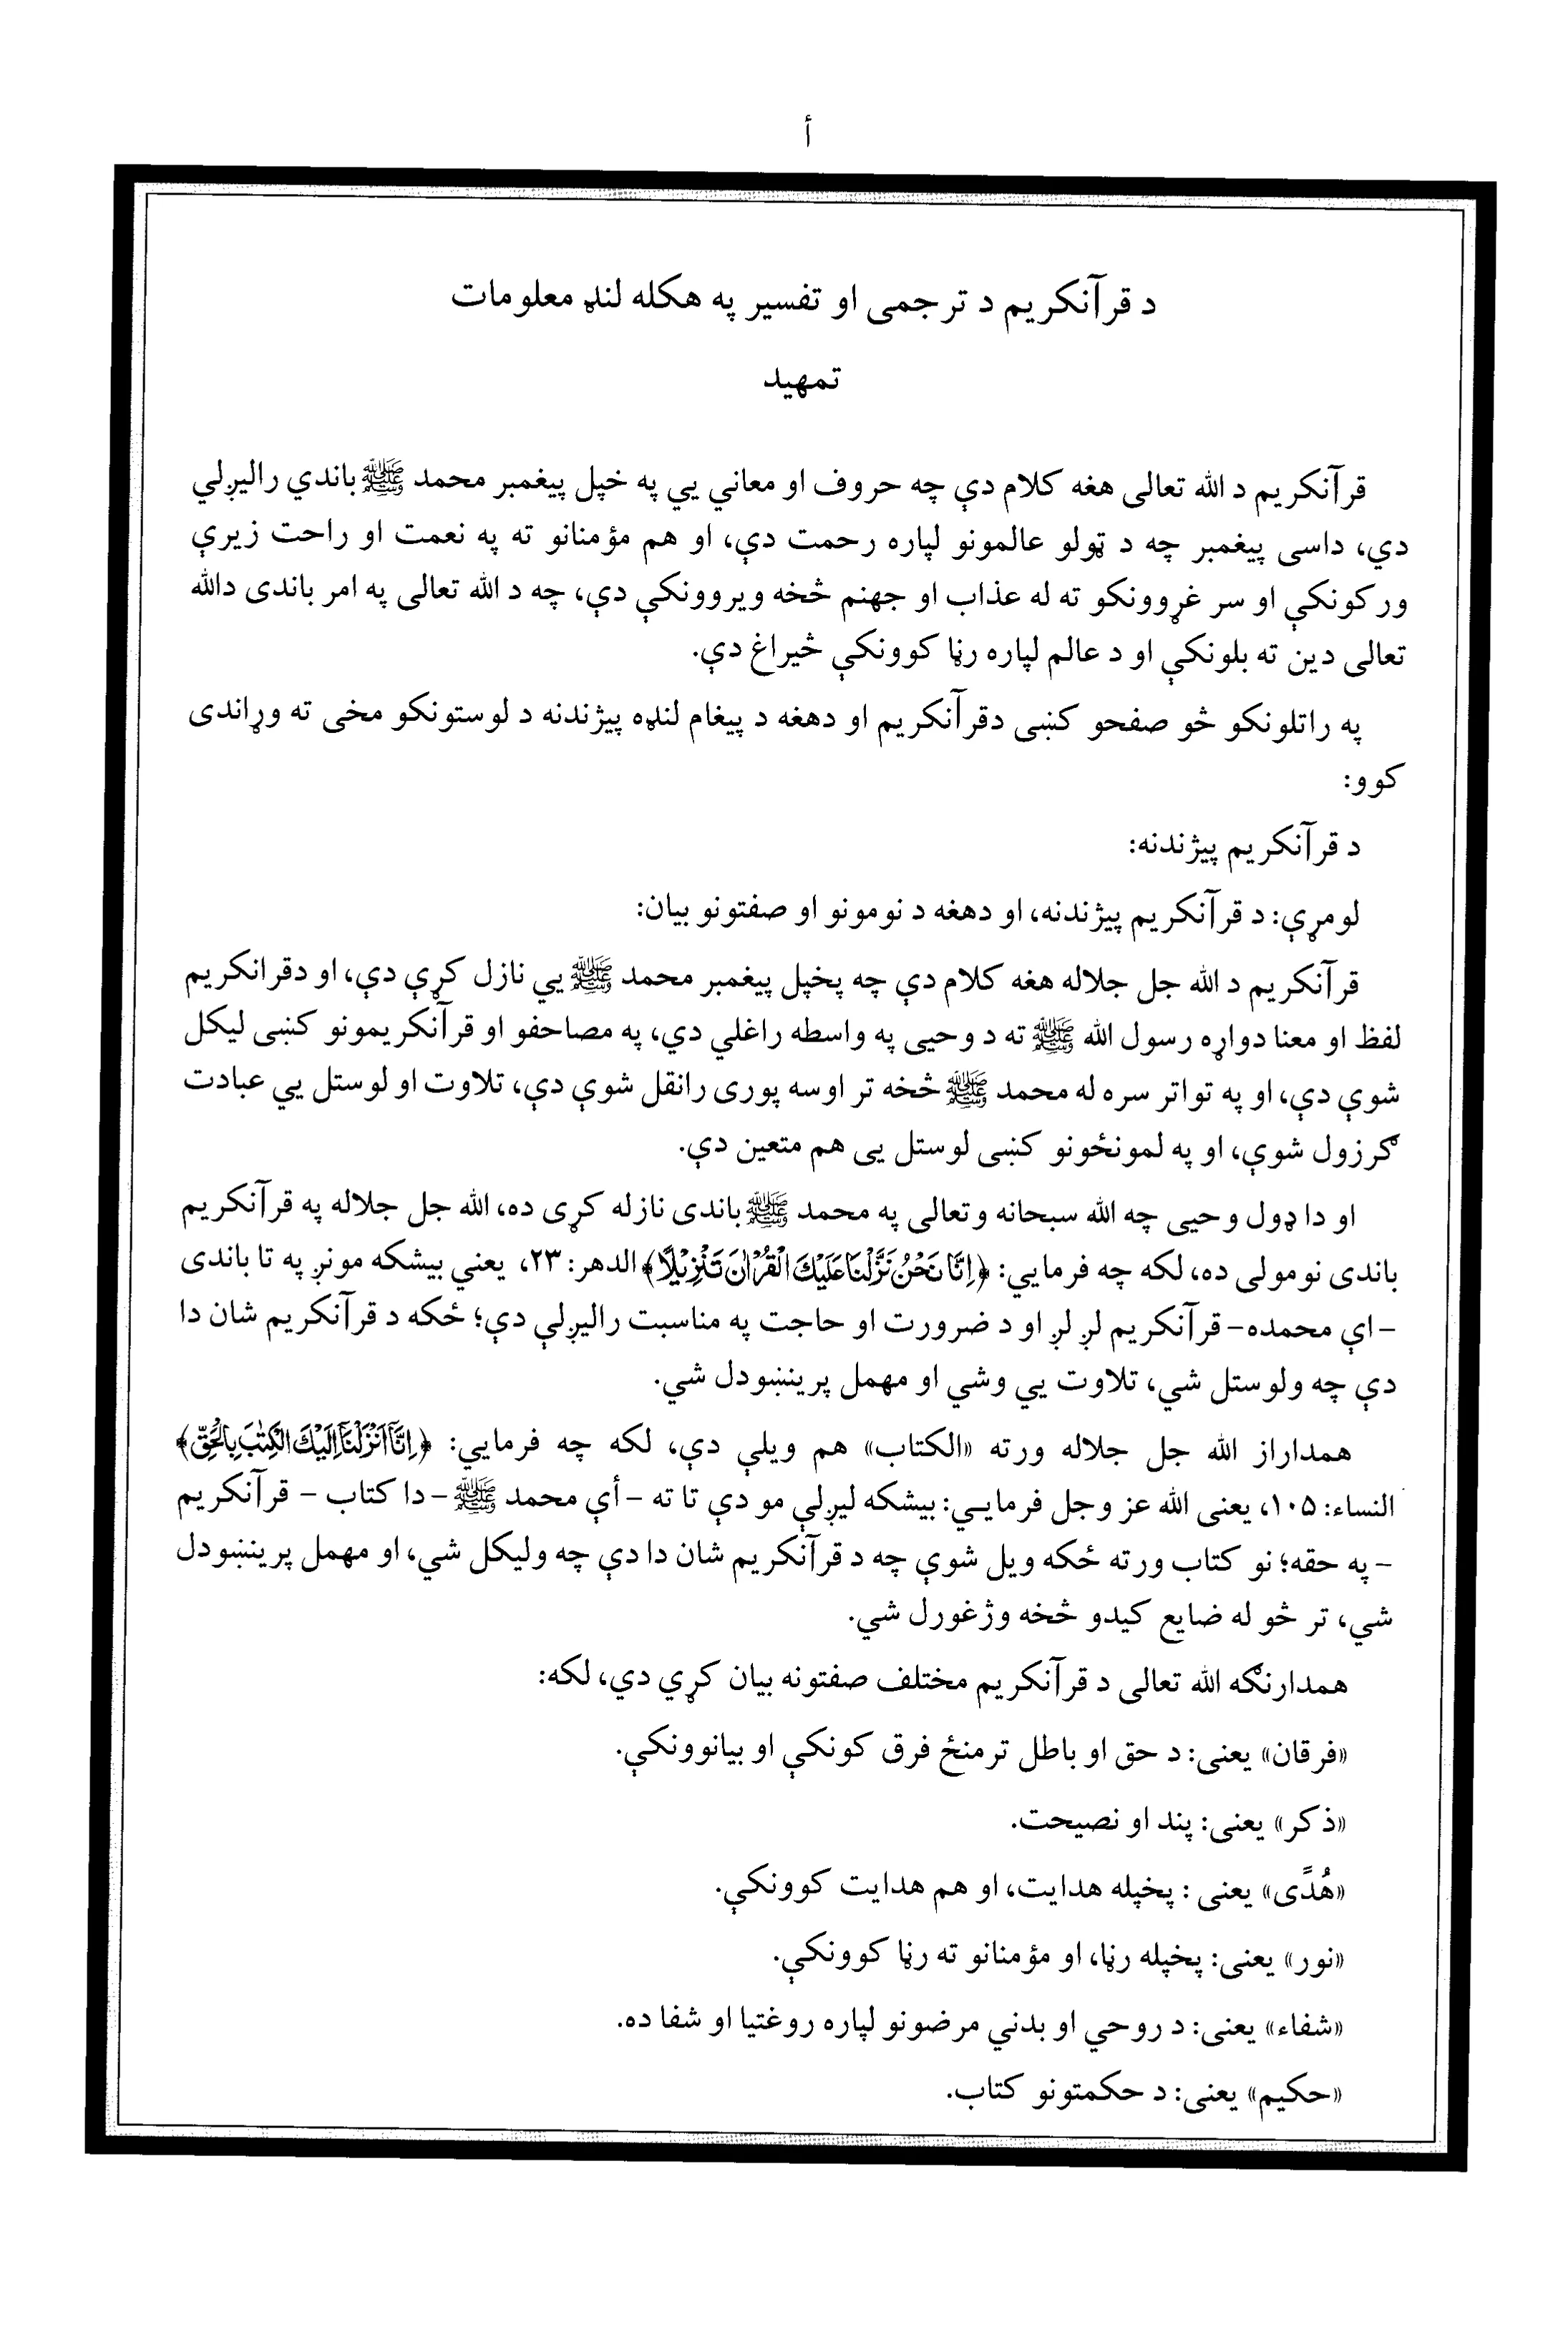 أ
د قرآنکریم د ترجمی او تفسیر په هکله لنډ معلومات
تمهید
قرآنکریم د الله تعالی هغه کلام دې چه حروف او معاني یي په خپل پیغمبر محمد ﷺ باندي رالیږلي
دي، داسی پیغمبر چه د ټولو عالمونو لپاره رحمت دې، او هم مؤمنانو ته په نعمت او راحت زیرې
ورکونکې او سر غړوونکو ته له عذاب او جهنم څخه ویروونکې دې، چه د الله تعالی په امر باندی دالله
تعالی دین ته بلونکې او د عالم لپاره رڼا کوونکې څیراغ دې.
په راتلونکو څو صفحو کښی دقرآنکریم او دهغه د پیغام لنډه پیژندنه د لوستونکو مخی ته وړاندی
کوو:
د قرآنکریم پیژندنه:
لومړې: د قرآنکریم پیژندنه، او دهغه د نومونو او صفتونو بیان:
قرآنکریم د الله جل جلاله هغه کلام دې چه پخپل پیغمبر محمد ﷺ یي نازل کړې دې، او دقرانکریم
لفظ او معنا دواړه رسول الله ﷺ ته د وحیی په واسطه راغلي دي، په مصاحفو او قرآنکریمونو کښی لیکل
شوې دې، او په تواتر سره له محمد ﷺ څخه تر اوسه پوری رانقل شوې دې، تلاوت او لوستل یي عبادت
ګرزول شوې، او په لمونځونو کښی لوستل یی هم متعین دې.
او دا ډول وحیی چه الله سبحانه وتعالی په محمد ﷺ باندی نازله کړی ده، الله جل جلاله په قرآنکریم
باندی نومولی ده، لکه چه فرمایي: ﴿اِنَّا نَحْنُ نَزَّلْنَا عَلَيْكَ الْقُرْاٰنَ تَنْزِيْلًا﴾ الدهر: ۲۳، یعني بیشکه مونږ په تا باندی
– اې محمده– قرآنکریم لږ لږ او د ضرورت او حاجت په مناسبت رالیږلې دې؛ ځکه د قرآنکریم شان دا
دې چه ولوستل شي، تلاوت یي وشي او مهمل پرینښودل شي.
همداراز الله جل جلاله ورته «الکتاب» هم ویلې دې، لکه چه فرمایي: ﴿اِنَّآ اَنْزَلْنَآ اِلَيْكَ الْكِتٰبَ بِالْحَقِّ﴾
النساء: ۱۰۵، یعنی الله عز وجل فرمایـي: بیشکه لیږلې مو دې تا ته – أې محمد ﷺ – دا کتاب – قرآنکریم
– په حقه؛ نو کتاب ورته ځکه ویل شوې چه د قرآنکریم شان دا دې چه ولیکل شي، او مهمل پرینښودل
شي، تر څو له ضایع کیدو څخه وژغورل شي.
همدارنګه الله تعالی د قرآنکریم مختلف صفتونه بیان کړي دي، لکه:
«فرقان» یعنی: د حق او باطل ترمنځ فرق کونکې او بیانوونکې.
«ذکر» یعنی: پند او نصیحت.
«هُدًی» یعنی : پخپله هدایت، او هم هدایت کوونکې.
«نور» یعنی: پخپله رڼا، او مؤمنانو ته رڼا کوونکې.
«شفاء» یعنی: د روحي او بدني مرضونو لپاره روغتیا او شفا ده.
«حکیم» یعنی: د حکمتونو کتاب.